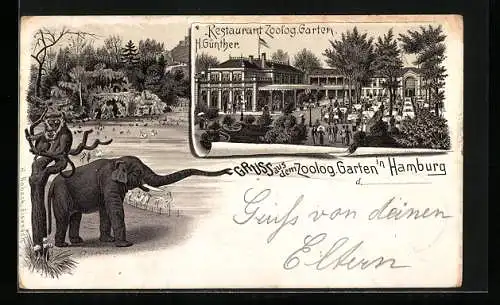 Restaurant Zoolog. Garten
H. Günther.
GRUSS aus dem Zoolog. Garten in Hamburg
d.
Gruß von deinen
Eltern